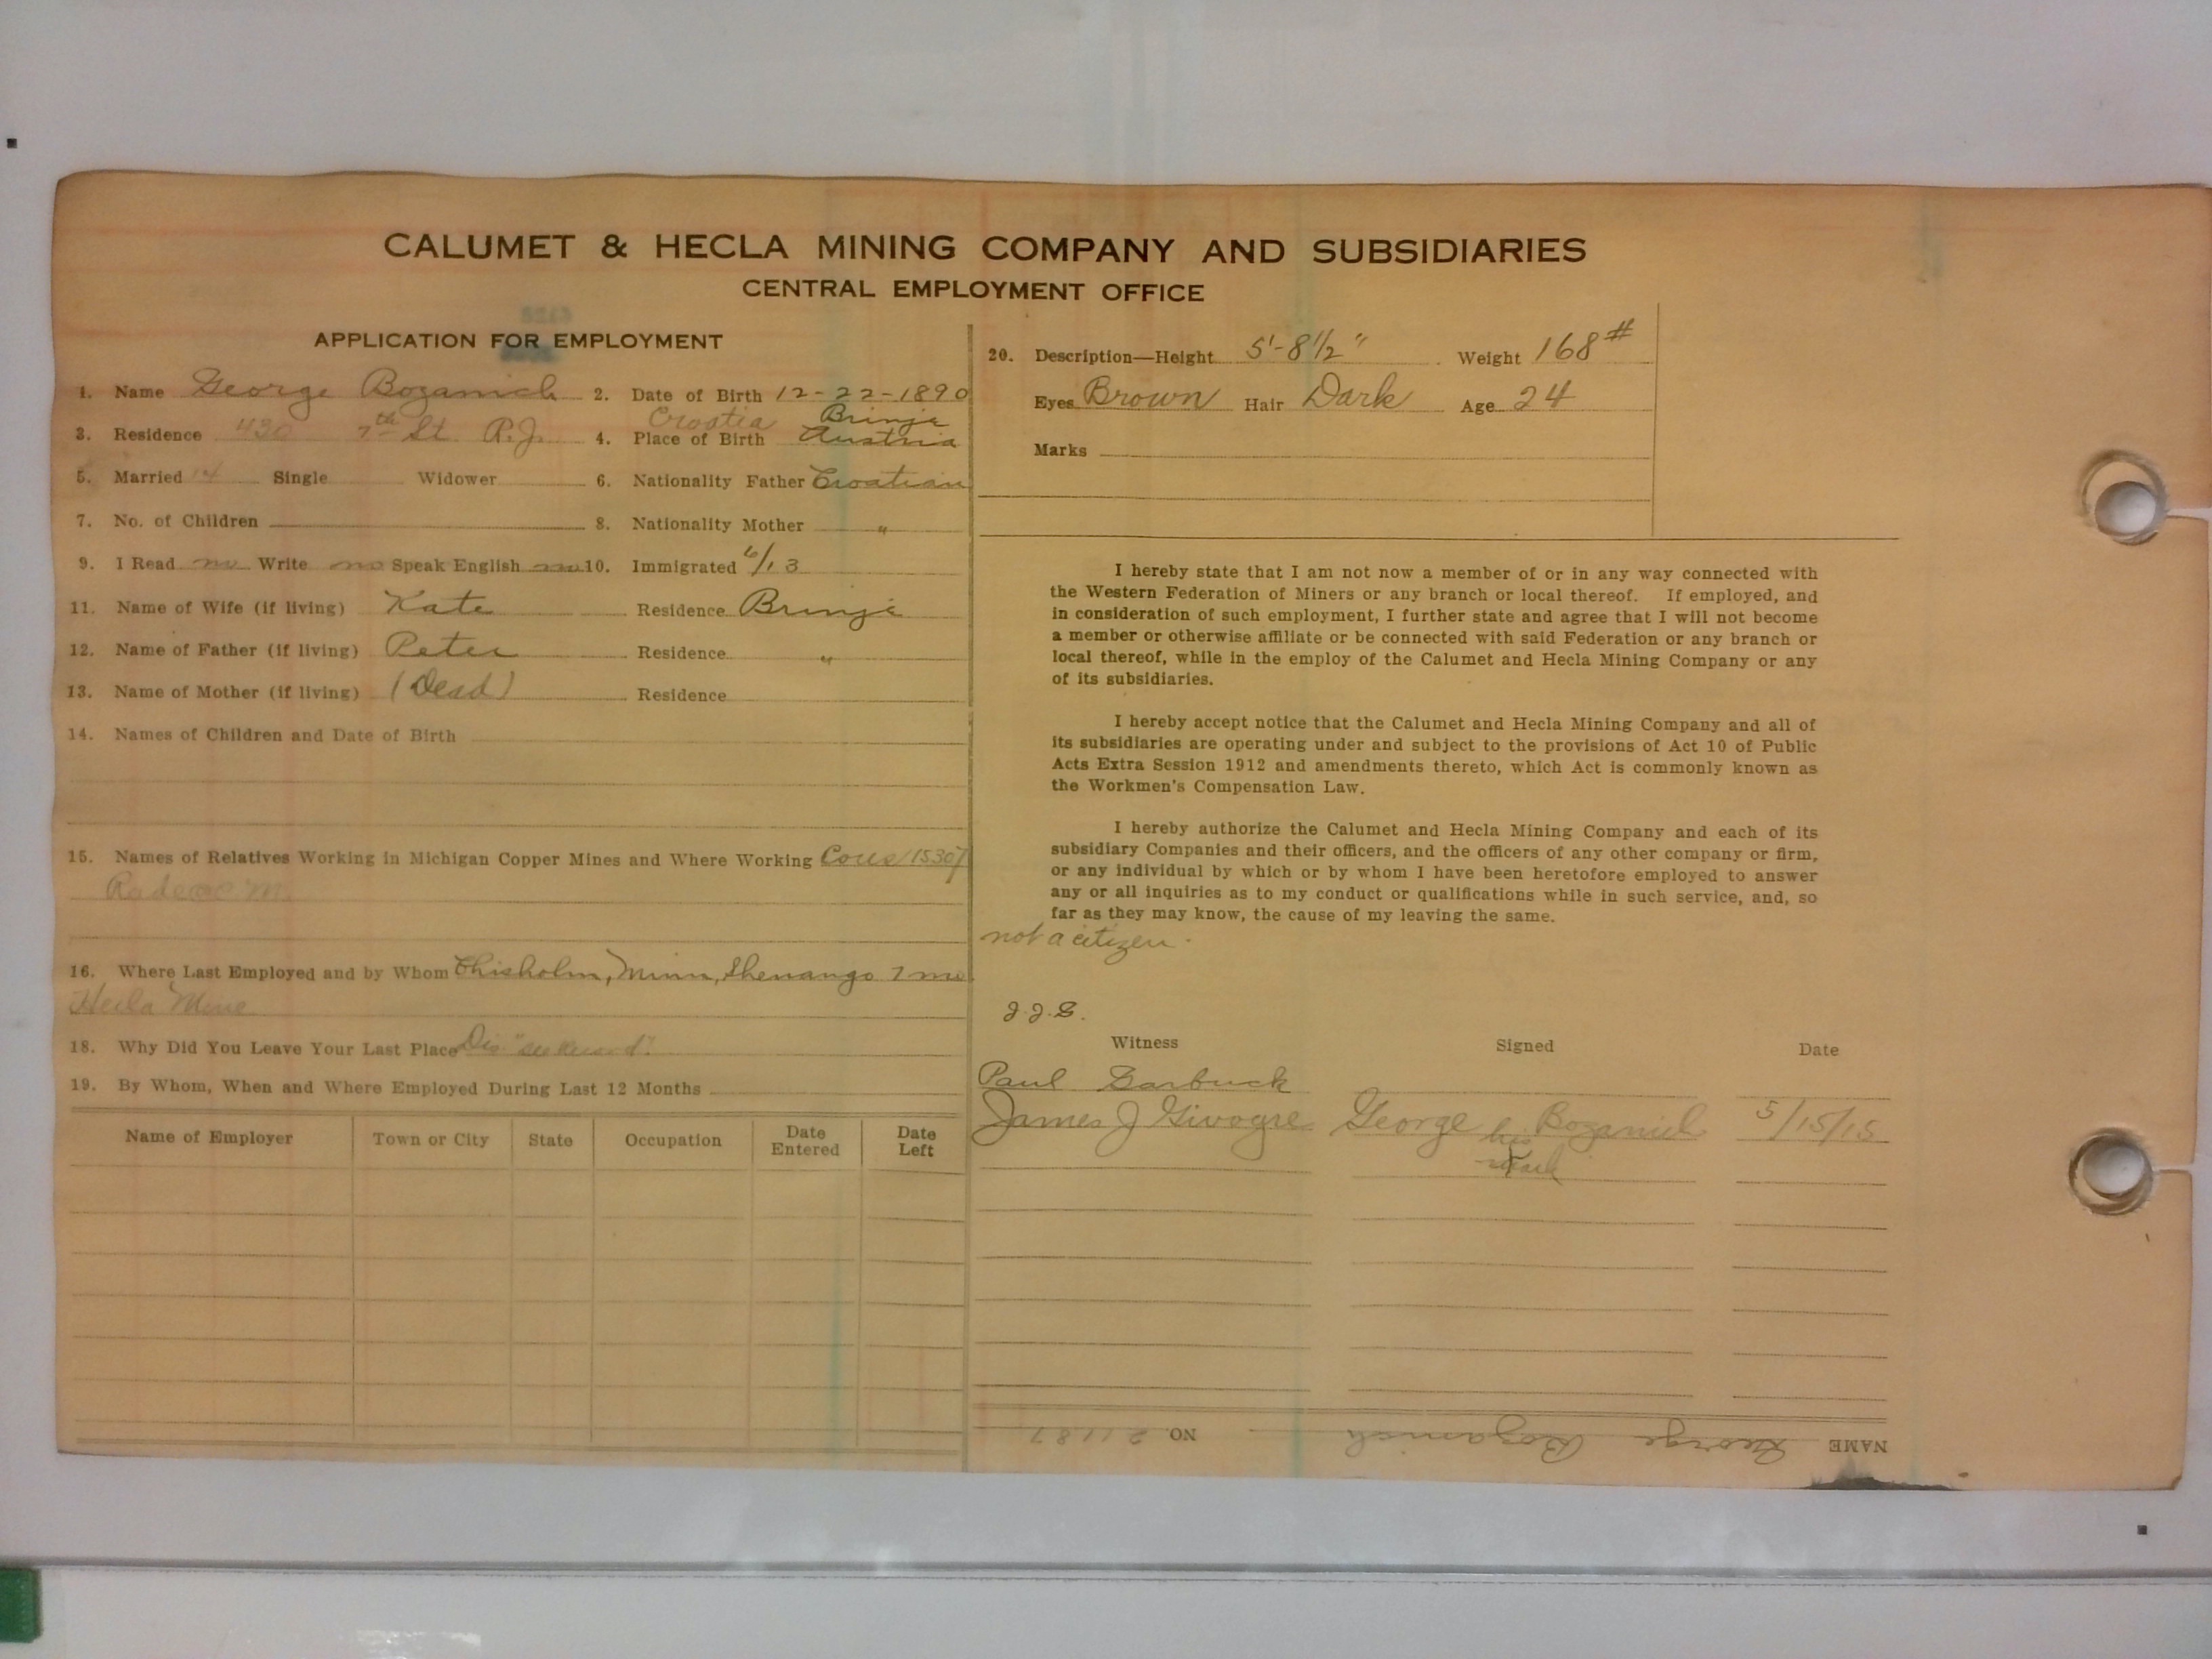 CALUMET & HECLA MINING COMPANY AND SUBSIDIARIES
CENTRAL EMPLOYMENT OFFICE
APPLICATION FOR EMPLOYMENT
1. Name George Bozanich 2. Date of Birth 12-22-1890
Croatia Brinje
3. Residence 430 7th St. R.J. 4. Place of Birth Austria
5. Married Single Widower 6. Nationality Father Croatian
7. No. of Children 8. Nationality Mother "
9. I Read no Write no Speak English no 10. Immigrated 6/13
11. Name of Wife (if living) Kate Residence Brinje
12. Name of Father (if living) Peter Residence "
13. Name of Mother (if living) (Dead) Residence
14. Names of Children and Date of Birth
15. Names of Relatives Working in Michigan Copper Mines and Where Working Cous 15307
16. Where Last Employed and by Whom Chisholm, Minn, Shenango 7 mo
Hecla Mine
18. Why Did You Leave Your Last Place Dis "see Record".
19. By Whom, When and Where Employed During Last 12 Months
Name of Employer Town or City State Occupation Date Entered Date Left
20. Description—Height 5'-8½" Weight 168#
Eyes Brown Hair Dark Age 24
Marks
I hereby state that I am not now a member of or in any way connected with
the Western Federation of Miners or any branch or local thereof. If employed, and
in consideration of such employment, I further state and agree that I will not become
a member or otherwise affiliate or be connected with said Federation or any branch or
local thereof, while in the employ of the Calumet and Hecla Mining Company or any
of its subsidiaries.
I hereby accept notice that the Calumet and Hecla Mining Company and all of
its subsidiaries are operating under and subject to the provisions of Act 10 of Public
Acts Extra Session 1912 and amendments thereto, which Act is commonly known as
the Workmen's Compensation Law.
I hereby authorize the Calumet and Hecla Mining Company and each of its
subsidiary Companies and their officers, and the officers of any other company or firm,
or any individual by which or by whom I have been heretofore employed to answer
any or all inquiries as to my conduct or qualifications while in such service, and, so
far as they may know, the cause of my leaving the same.
not a citizen.
J.J.G.
Witness Signed Date
Paul Garbuck
James J Givogre George Bozanich 5/15/15
his
mark
NAME George Bozanich NO. 21187